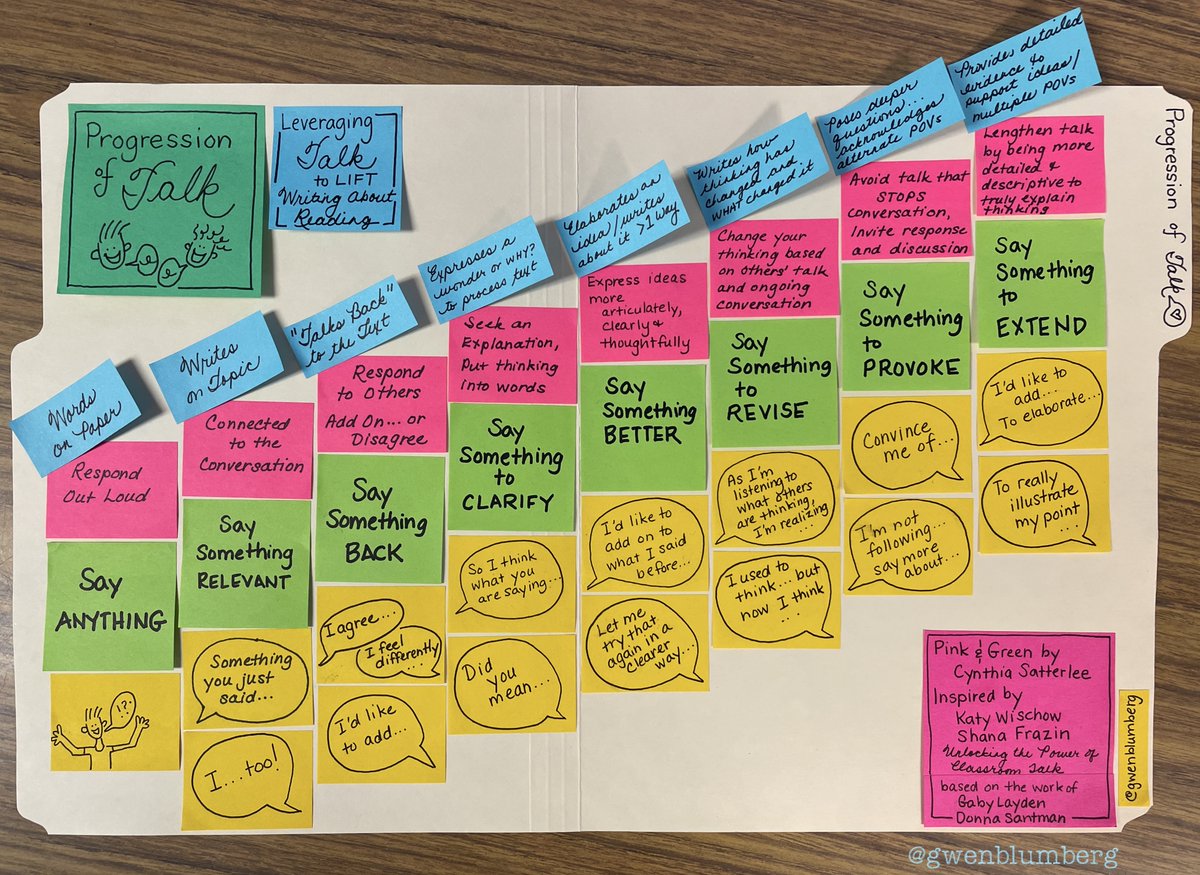 Progression
of Talk
Leveraging
Talk
to LIFT
Writing About
Reading
Words
on Paper
Respond
Out Loud
Say
ANYTHING
!?
Writes
on Topic
Connected
to the
Conversation
Say
Something
RELEVANT
Something
you just
said...
I....too!
"Talks Back"
to the Text
Respond
to Others
Add On... or
Disagree
Say
Something
BACK
I agree...
I feel
differently
I'd like
to add...
Expresses a
wonder or WHY?
to process text
Seek an
Explanation,
Put thinking
into words
Say
Something
to
CLARIFY
So I think
what you
are saying...
Did
you
mean...
Elaborates an
idea/writes
about it >1 way
Express ideas
more
articulately,
clearly &
thoughtfully
Say
Something
BETTER
I'd like to
add on to
what I said
before...
Let me
try that
again in a
clearer
way...
Writes how
thinking has
changed and
WHAT changed it
Change your
thinking based
on others' talk
and ongoing
conversation
Say
Something
to
REVISE
As I'm
listening to
what others
are thinking,
I'm realizing
...
I used to
think... but
now I think
..
Poses deeper
questions...
acknowledges
alternate POVs
Avoid talk that
STOPS
conversation,
Invite response
and discussion
Say
Something
to
PROVOKE
Convince
me of...
I'm not
following...
say more
about...
Provides detailed
evidence to
support ideas/
multiple POVs
Lengthen talk
by being more
detailed &
descriptive to
truly explain
thinking
Say
Something
to
EXTEND
I'd like to
add...
To elaborate...
To really
illustrate
my point
...
Progression of Talk
Pink & Green by
Cynthia Satterlee
Inspired by
Katy Wischow
Shana Frazin
Unlocking the Power of
Classroom Talk
based on the work of
Gaby Layden
Donna Santman
@gwenblumberg
@gwenblumberg